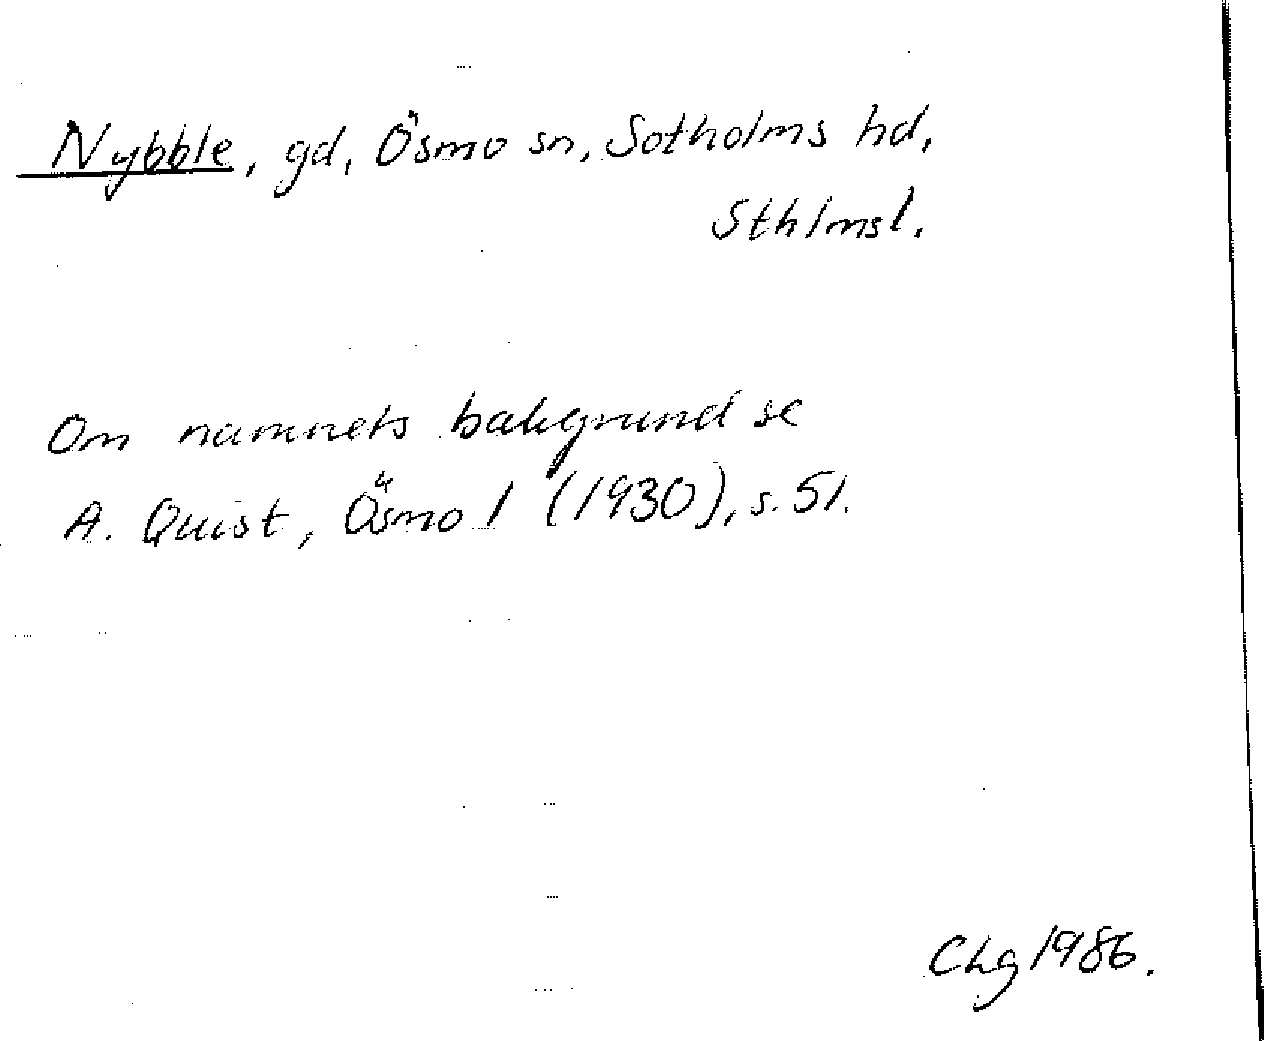 Nybble, gd, Ösmo sn, Sotholms hd,
Sthlmsl.
Om namnets bakgrund se
A. Quist, Ösmo I (1930), s. 51.
Chg 1986.